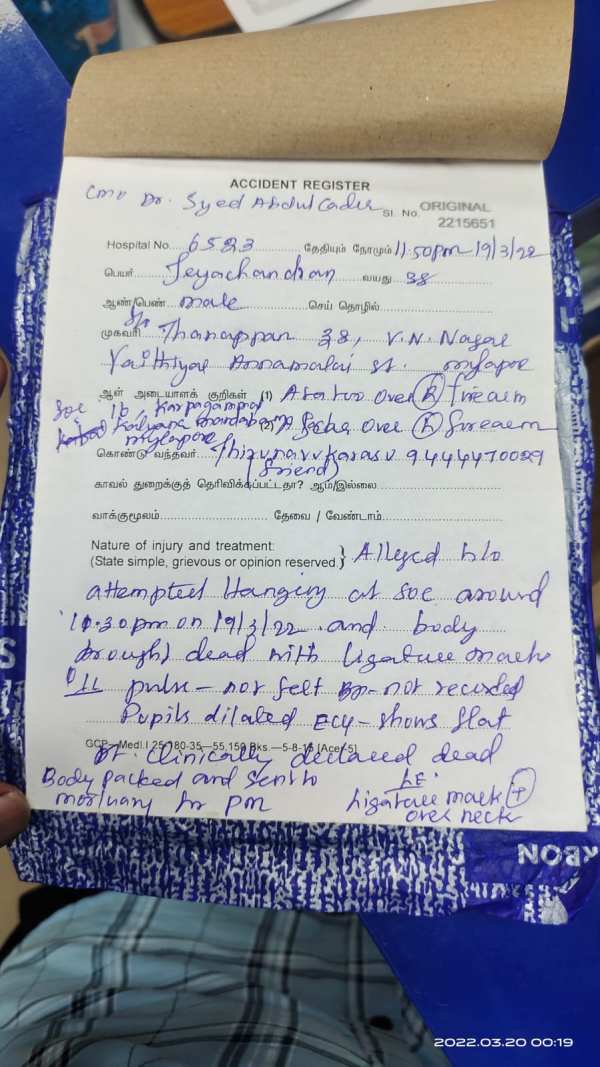 ACCIDENT REGISTER
CMO Dr. Syed Abdul Cader Sl. No. ORIGINAL
2215651
Hospital No. 6523 தேதியும் நேரமும் 11.50pm 19/3/22
பெயர் Jeyachandran வயது 38
ஆண்/பெண் male செய் தொழில்
S/o
முகவரி Thanappan 38, V.N. Nagar
Vaithiyar Annamalai st. mylapore
ஆள் அடையாளக் குறிகள் (1) A tatoo over (R) forearm
SOC 16 Karpagampal
Kalyana mandabam (2) A over (R) forearm
mylapore
கொண்டு வந்தவர் Thirunavukarasu 9444470029
(friend)
காவல் துறைக்குத் தெரிவிக்கப்பட்டதா? ஆம்/இல்லை
வாக்குமூலம் தேவை / வேண்டாம்
Nature of injury and treatment:
(State simple, grievous or opinion reserved.} Alleged h/o
attempted Hanging at SOC around
10.30pm on 19/3/22 and body
brought dead with ligature mark
pulse - not felt BP - not recorded
Pupils dilated ECG - shows flat
GCP—Medl.I 25-180-35—55,150 Bks.—5-8-15 [Ace/-5]
Pt. clinically declared dead
Body packed and sent to L/E:
mortuary for PM Ligature mark (+)
over neck
NOB
2022.03.20 00:19